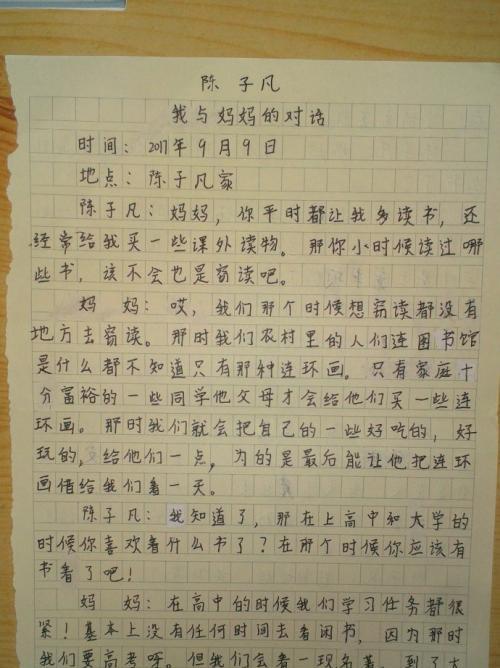 陈子凡
我与妈妈的对话
时间：2017年9月9日
地点：陈子凡家
陈子凡：妈妈，你平时都让我多读书，还
经常给我买一些课外读物。那你小时候读过哪
些书，该不会也是窃读吧。
妈妈：哎，我们那个时候想窃读都没有
地方去窃读。那时我们农村里的人们连图书馆
是什么都不知道只有那种连环画。只有家庭十
分富裕的一些同学他父母才会给他们买一些连
环画。那时我们就会把自己的一些好吃的，好
玩的，给他们一点，为的是最后能让他把连环
画借给我们看一天。
陈子凡：我知道了，那在上高中和大学的
时候你喜欢看什么书了？在那个时候你应该有
书看了吧！
妈妈：在高中的时候我们学习任务都很
紧！基本上没有任何时间去看闲书，因为那时
我们要高考呀。但我们会看一些名著。到了大